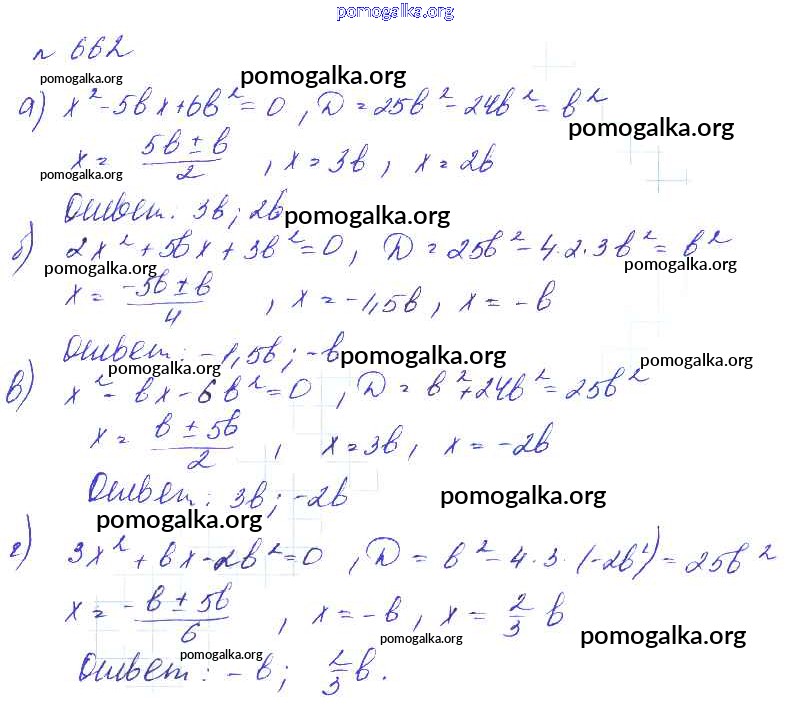 pomogalka.org
№ 662
pomogalka.org pomogalka.org
а) x² - 5bx + 6b² = 0, D = 25b² - 24b² = b²
pomogalka.org
x = (5b ± b)/2, x = 3b, x = 2b
pomogalka.org
Ответ: 3b; 2b
pomogalka.org
б) 2x² + 5bx + 3b² = 0, D = 25b² - 4·2·3b² = b²
pomogalka.org pomogalka.org
x = (-5b ± b)/4, x = -1,5b, x = -b
Ответ: -1,5b; -b
pomogalka.org pomogalka.org pomogalka.org
в) x² - bx - 6b² = 0, D = b² + 24b² = 25b²
x = (b ± 5b)/2, x = 3b, x = -2b
Ответ: 3b; -2b
pomogalka.org pomogalka.org
г) 3x² + bx - 2b² = 0, D = b² - 4·3·(-2b²) = 25b²
x = (-b ± 5b)/6, x = -b, x = 2/3 b
pomogalka.org pomogalka.org pomogalka.org
Ответ: -b; 2/3 b.